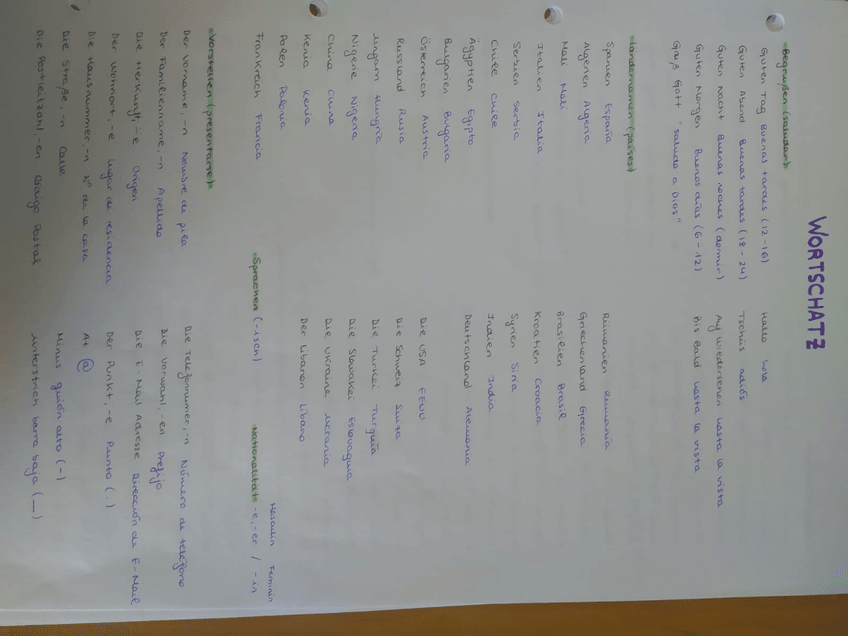 WORTSCHATZ
Begrüßen (saludar)
Guten Tag Buenas tardes (12-16)
Guten Abend Buenas tardes (18-24)
Guten Nacht Buenas noches (dormir)
Guten Morgen Buenos días (6-12)
Grüß Gott "saludo a Dios"
Hallo hola
Tschüs adiós
Auf Wiedersehen hasta la vista
Bis Bald hasta la vista
Ländernamen (países)
Spanien España
Algerien Algeria
Mali Mali
Italien Italia
Serbien Serbia
Chile Chile
Ägypten Egipto
Bulgarien Bulgaria
Österreich Austria
Russland Rusia
Ungarn Hungría
Nigeria Nigeria
China China
Kenia Kenia
Polen Polonia
Frankreich Francia
Rumänien Rumania
Griechenland Grecia
Brasilien Brasil
Kroatien Croacia
Syrien Siria
Indien India
Deutschland Alemania
Die USA EEUU
Die Schweiz Suiza
Die Türkei Turquía
Die Slowakei Eslovaquia
Die Ukraine Ucrania
Der Libanon Líbano
Sprachen (-isch)
Maskulin Feminin
Nationalität -e,-er / -in
Vorstellen (presentarse)
Der Vorname,-n Nombre de pila
Der Familienname,-n Apellido
Die Herkunft,-e Origen
Der Wohnort,-e lugar de residencia
Die Hausnummer,-n Nº de la casa
Die Straße,-n Calle
Die Postleitzahl,-en Código Postal
Die Telefonnumer,-n Número de teléfono
Die Vorwahl,-en Prefijo
Die E-Mail Adresse Dirección de E-Mail
Der Punkt,-e Punto (.)
At @
Minus guión alto (-)
Unterstrich barra baja (_)